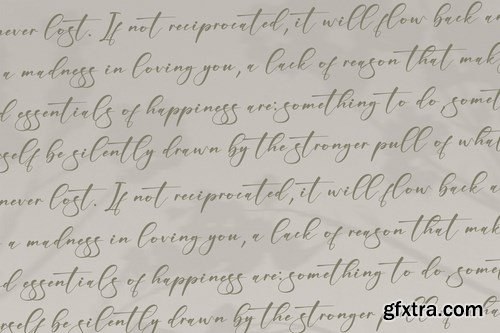 never lost. If not reciprocated, it will flow back a
a madness in loving you, a lack of reason that mak
d essentials of happiness are: something to do, somet
self be silently drawn by the stronger pull of what
never lost. If not reciprocated, it will flow back a
a madness in loving you, a lack of reason that mak
d essentials of happiness are: something to do, somet
rself be silently drawn by the stronger pull of what
gfxtra.com